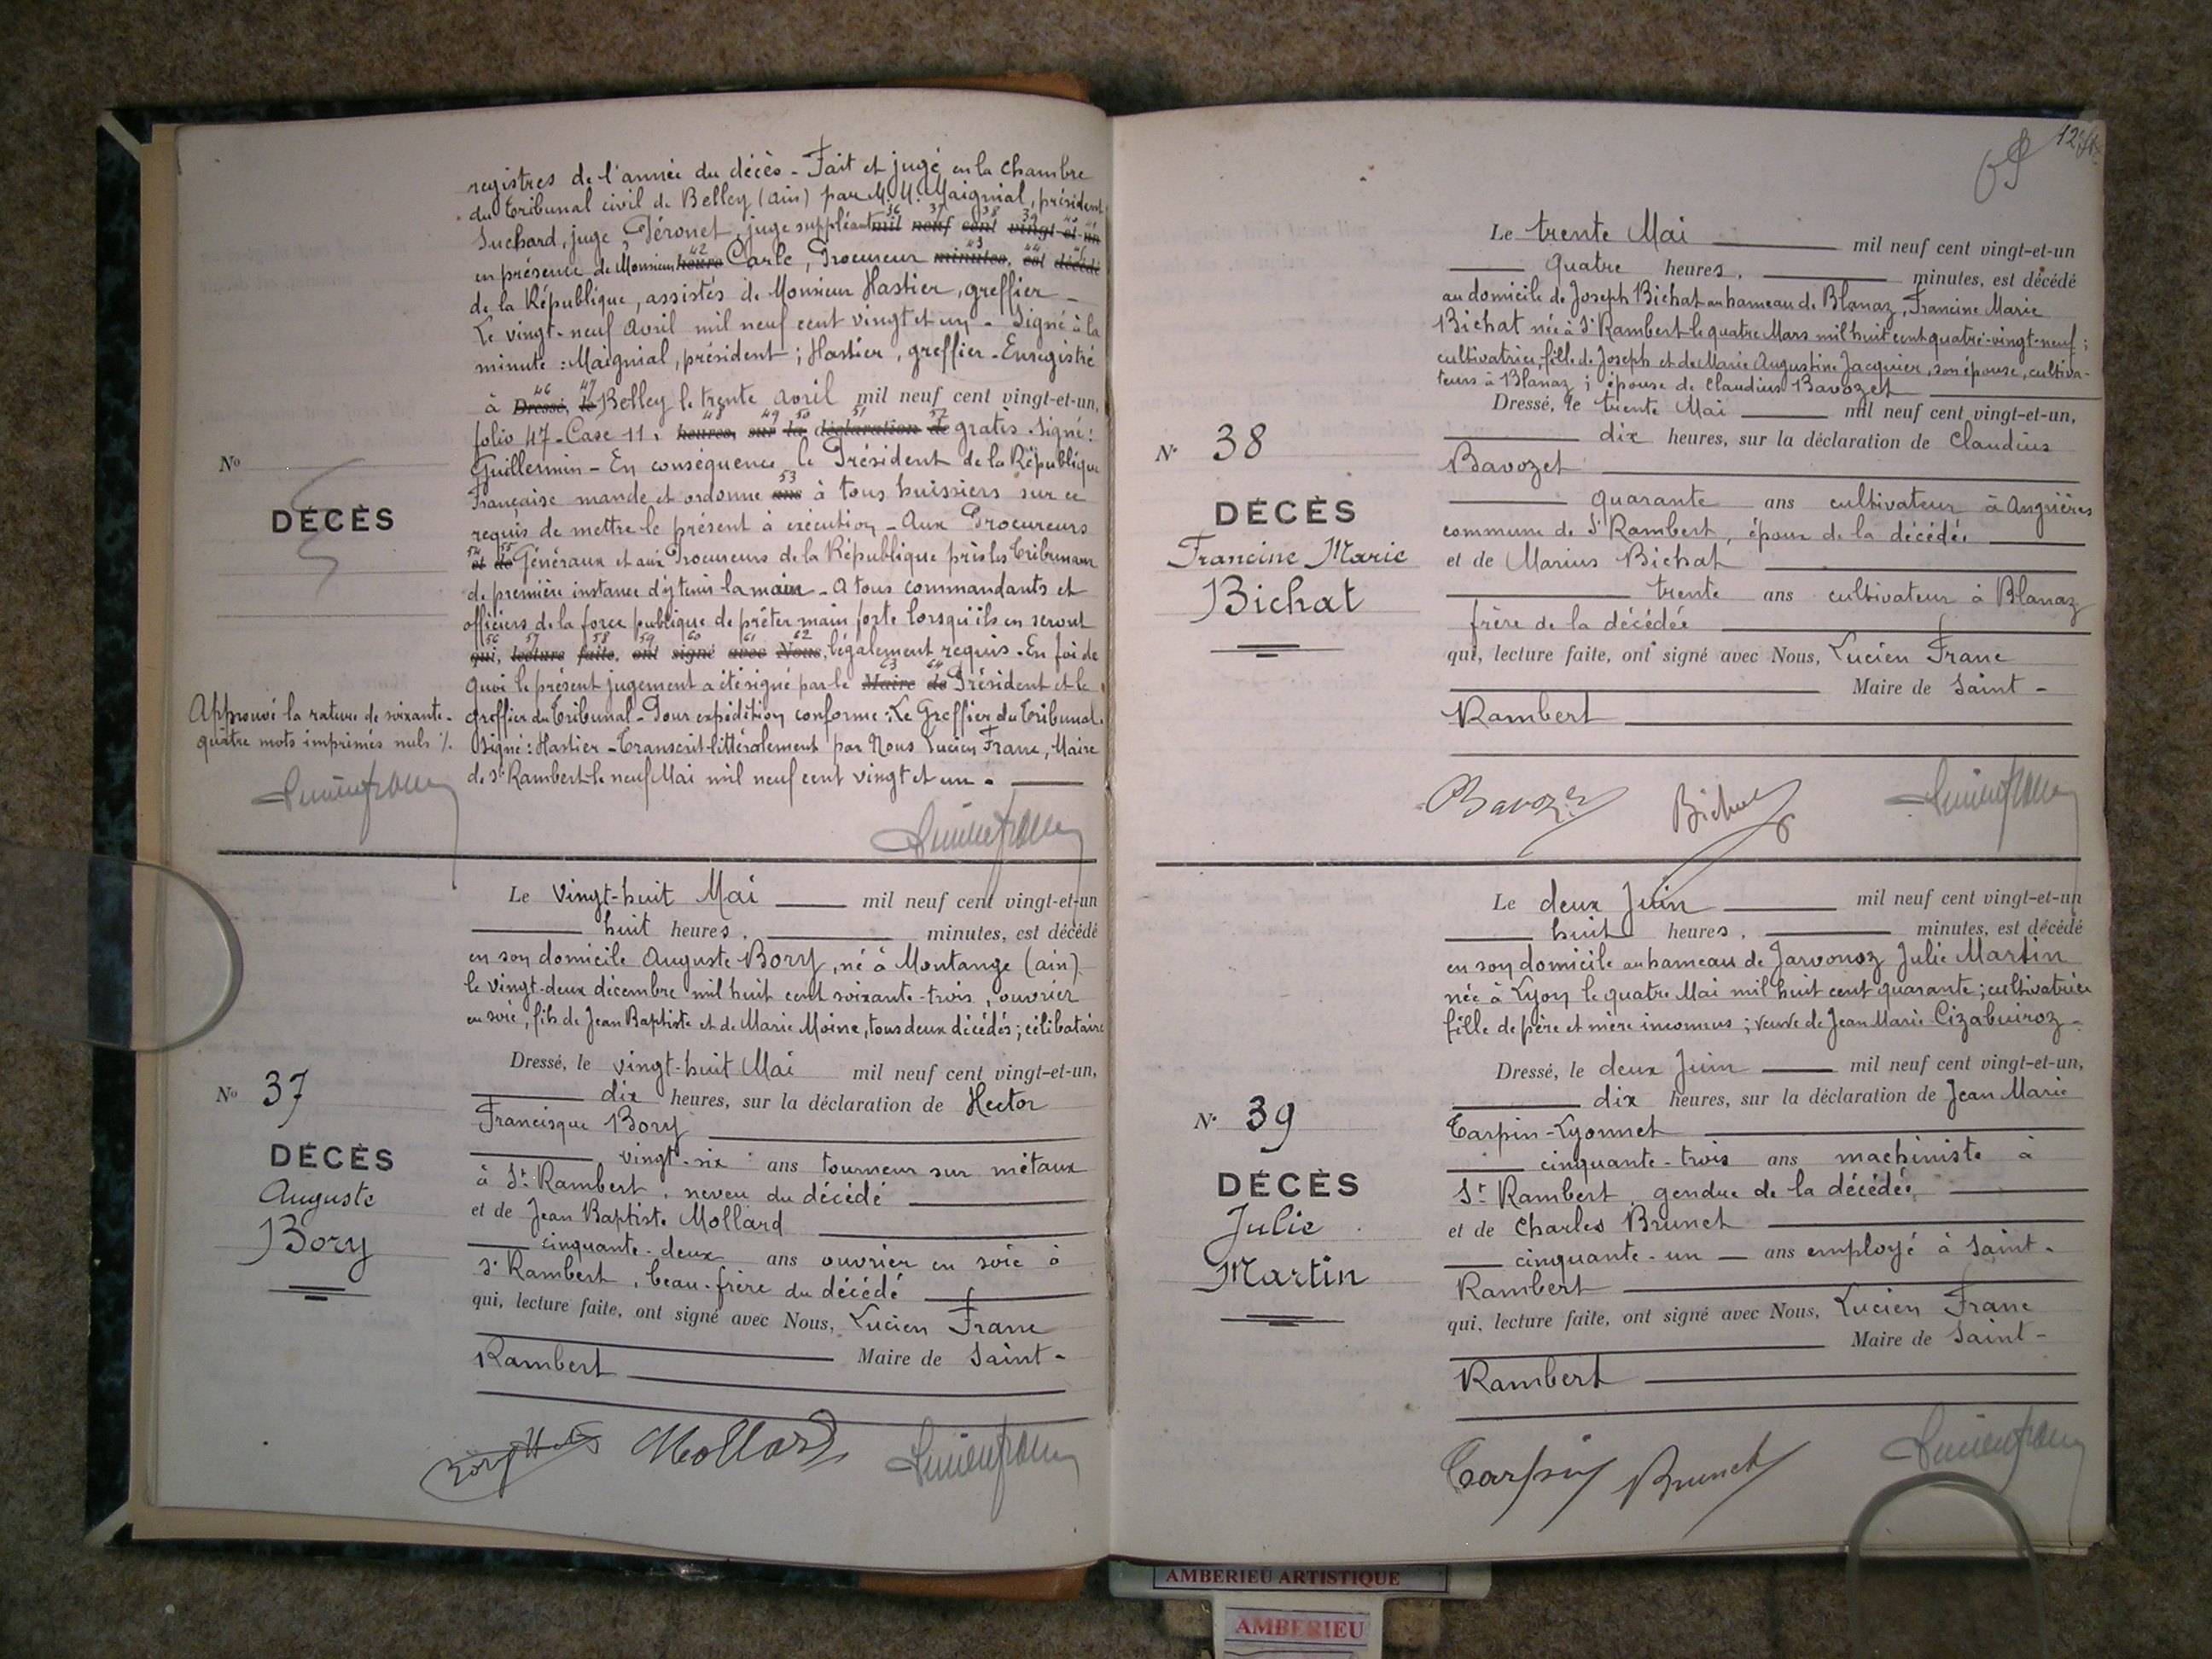 registres de l'année du décès - Fait et jugé en la Chambre
du Tribunal civil de Belley (ain) par M.M. Maignial, président
Suchard, juge, Péronet, juge suppléant mil neuf cent vingt-et-un
36 37 38 39 40 41
en présence de Monsieur heures Carle, Procureur minutes, est décédé
42 43 44 45
de la République, assistés de Monsieur Hastier, greffier -
Le vingt-neuf avril mil neuf cent vingt et un - Signé à la
minute : Maignial, président ; Hastier, greffier - Enregistré
46 47
à Dressé, le Belley le trente avril mil neuf cent vingt-et-un,
48 49 50 51 52
folio 47 - Case 11. heures, sur la déclaration de gratis. Signé :
Guillermin - En conséquence le Président de la République
53
Française mande et ordonne ans à tous huissiers sur ce
requis de mettre le présent à exécution - Aux Procureurs
54 55
et de Généraux et aux Procureurs de la République près les Tribunaux
de première instance d'y tenir la main - A tous commandants et
officiers de la force publique de prêter main forte lorsqu'ils en seront
56 57 58 59 60 61 62
qui, lecture faite, ont signé avec Nous, légalement requis. En foi de
63 64
quoi le présent jugement a été signé par le Maire de Président et le
greffier du Tribunal - Pour expédition conforme : Le Greffier du Tribunal.
Signé : Hastier - Transcrit littéralement par Nous Lucien Franc, Maire
de St Rambert le neuf Mai mil neuf cent vingt et un.
No
DÉCÈS
Approuvé la rature de soixante-
quatre mots imprimés nuls %.
Lucien franc
Lucien franc
Le vingt-huit Mai mil neuf cent vingt-et-un
huit heures, minutes, est décédé
en son domicile Auguste Bory, né à Montange (ain)
le vingt-deux décembre mil huit cent soixante-trois, ouvrier
en soie, fils de Jean Baptiste et de Marie Moine, tous deux décédés ; célibataire
Dressé, le vingt-huit Mai mil neuf cent vingt-et-un,
dix heures, sur la déclaration de Hector
Francisque Bory
vingt-six ans tourneur sur métaux
à St Rambert, neveu du décédé
et de Jean Baptiste Mollard
cinquante-deux ans ouvrier en soie à
St Rambert, beau-frère du décédé
qui, lecture faite, ont signé avec Nous, Lucien Franc
Maire de Saint-
Rambert
No 37
DÉCÈS
Auguste
Bory
Mollard
Lucien franc
Le trente Mai mil neuf cent vingt-et-un
quatre heures, minutes, est décédé
au domicile de Joseph Bichat au hameau de Blanaz, Francine Marie
Bichat née à St Rambert le quatre Mars mil huit cent quatre-vingt-neuf ;
cultivatrice, fille de Joseph et de Marie Augustine Jacquier, son épouse, cultiva-
teurs à Blanaz ; épouse de Claudius Bavozet
Dressé, le trente Mai mil neuf cent vingt-et-un,
dix heures, sur la déclaration de Claudius
Bavozet
quarante ans cultivateur à Angrières
commune de St Rambert, époux de la décédée
et de Marius Bichat
trente ans cultivateur à Blanaz
frère de la décédée
qui, lecture faite, ont signé avec Nous, Lucien Franc
Maire de Saint-
Rambert
No 38
DÉCÈS
Francine Marie
Bichat
Bavozet
Bichat
Lucien franc
Le deux Juin mil neuf cent vingt-et-un
huit heures, minutes, est décédé
en son domicile au hameau de Jarvonoz Julie Martin
née à Lyon le quatre Mai mil huit cent quarante ; cultivatrice
fille de père et mère inconnus ; veuve de Jean Marie Cizabuiroz -
Dressé, le deux Juin mil neuf cent vingt-et-un,
dix heures, sur la déclaration de Jean Marie
Tarpin-Lyonnet
cinquante-trois ans machiniste à
St Rambert, gendre de la décédée,
et de Charles Brunet
cinquante-un ans employé à Saint-
Rambert
qui, lecture faite, ont signé avec Nous, Lucien Franc
Maire de Saint-
Rambert
No 39
DÉCÈS
Julie
Martin
Tarpin
Brunet
Lucien franc
AMBERIEU ARTISTIQUE
AMBERIEU